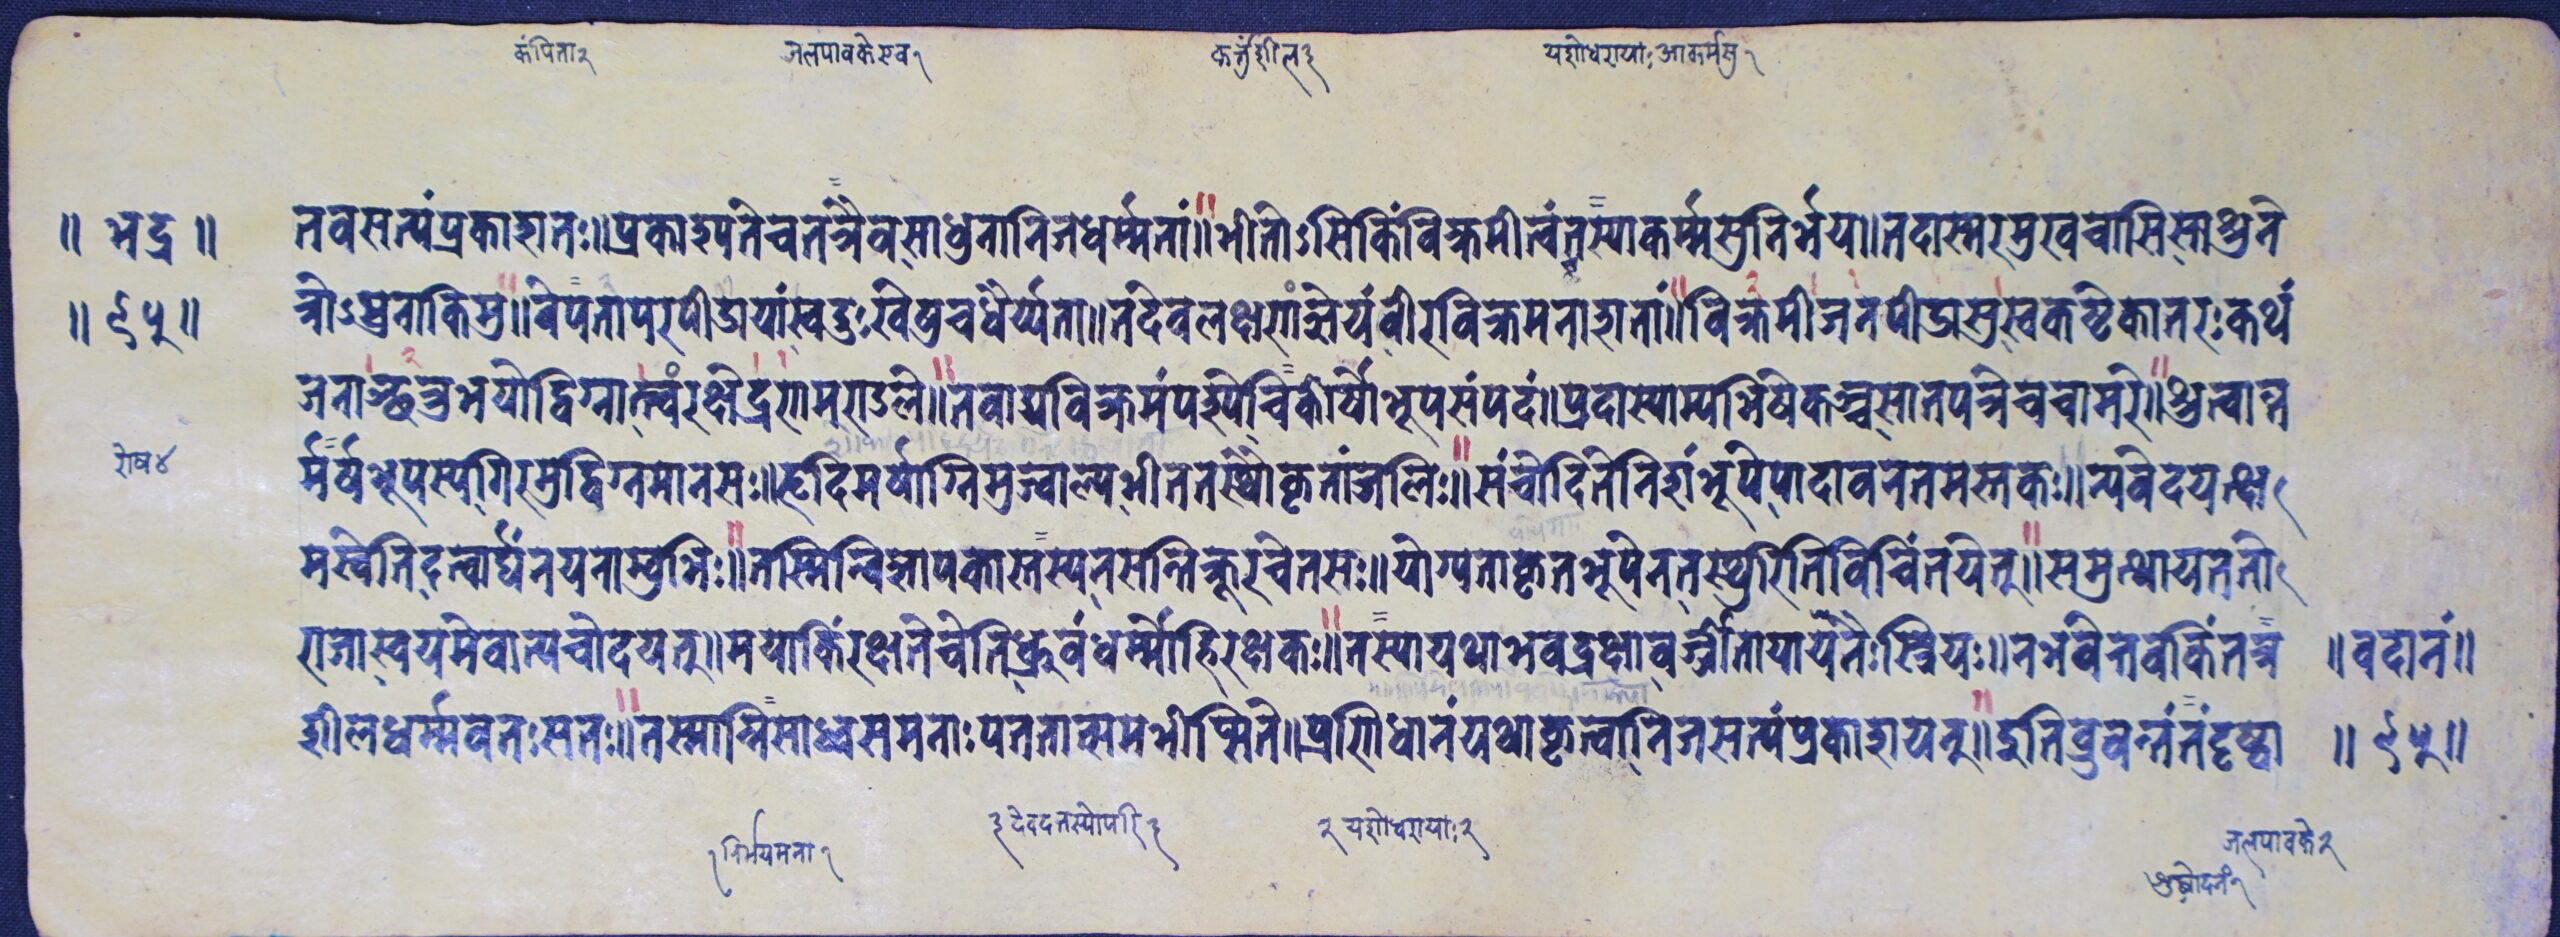 कंपिता२ जलपावके एव१ कर्त्तुंशील३ यशोधरायाः आकर्मसु१
॥ भद्र ॥
॥ ९५ ॥
तवसत्यंप्रकाशतः॥प्रकाश्यतेचतत्रैवसाधुनानिजधर्म्मतां॥भीतोऽसिकिंविक्रमीत्वंतस्याकर्म्मसुनिर्भय॥तदास्मरमुखचासिस्माश्रुने
त्रोऽधुनाकिमु॥वेपतापरपीडायांस्वदुःखेषुचधैर्य्यता॥तदेवलक्षणंज्ञेयंवीरविक्रमनाशतां॥विक्रमीजनपीडासुस्वकष्टेकातरःकथं
जनाञ्छत्रुभयोद्विग्नात्त्वंरक्षेद्रणमूराऽले॥तवाद्यविक्रमंपश्येचिकीर्षोभूपसंपदं॥प्रदास्याम्यभिषेकञ्चसातपत्रेचचामरे॥श्रुत्वान्त
र्मर्षभूपस्यगिरमुद्विग्नमानसः॥हृदिमर्षाग्निमुज्वाल्यभीतनस्थौकृतांजलिः॥संचोदितेनिशंभूपेपादावनतमस्तकः॥न्यवेदयत्क्ष
रोष४
मस्वेतिदत्वार्घंनयनाम्बुभिः॥तस्मिन्विज्ञापकास्तस्यनसन्तिक्रूरचेतसः॥योग्यताकृतभूपेनतस्थुरितिविचिंतयेत्॥समुत्थायततो
राजास्वयमेवान्यचोदयत्॥मयाकिंरक्षतेचेतिध्रुवंधर्म्मोहिरक्षकः॥तस्यायथाभवद्रक्षावर्ज्जितायार्यतैःस्त्रियः॥नभवेत्तवकिंतत्र
शीलधर्म्मवतःसतः॥तस्मान्निसाध्वसमनाःपतनात्समभीप्सिते॥प्रणिधानंयथाकृत्वानिजसत्यंप्रकाशयत्॥इतिब्रुवन्तंतंदृष्ट्वा
॥ वदानं॥
॥ ९५॥
१निर्भयमना१ ३देवदत्तस्योपरि३ २यशोधरायाः२ जलपावके२
शुद्धोदनं१